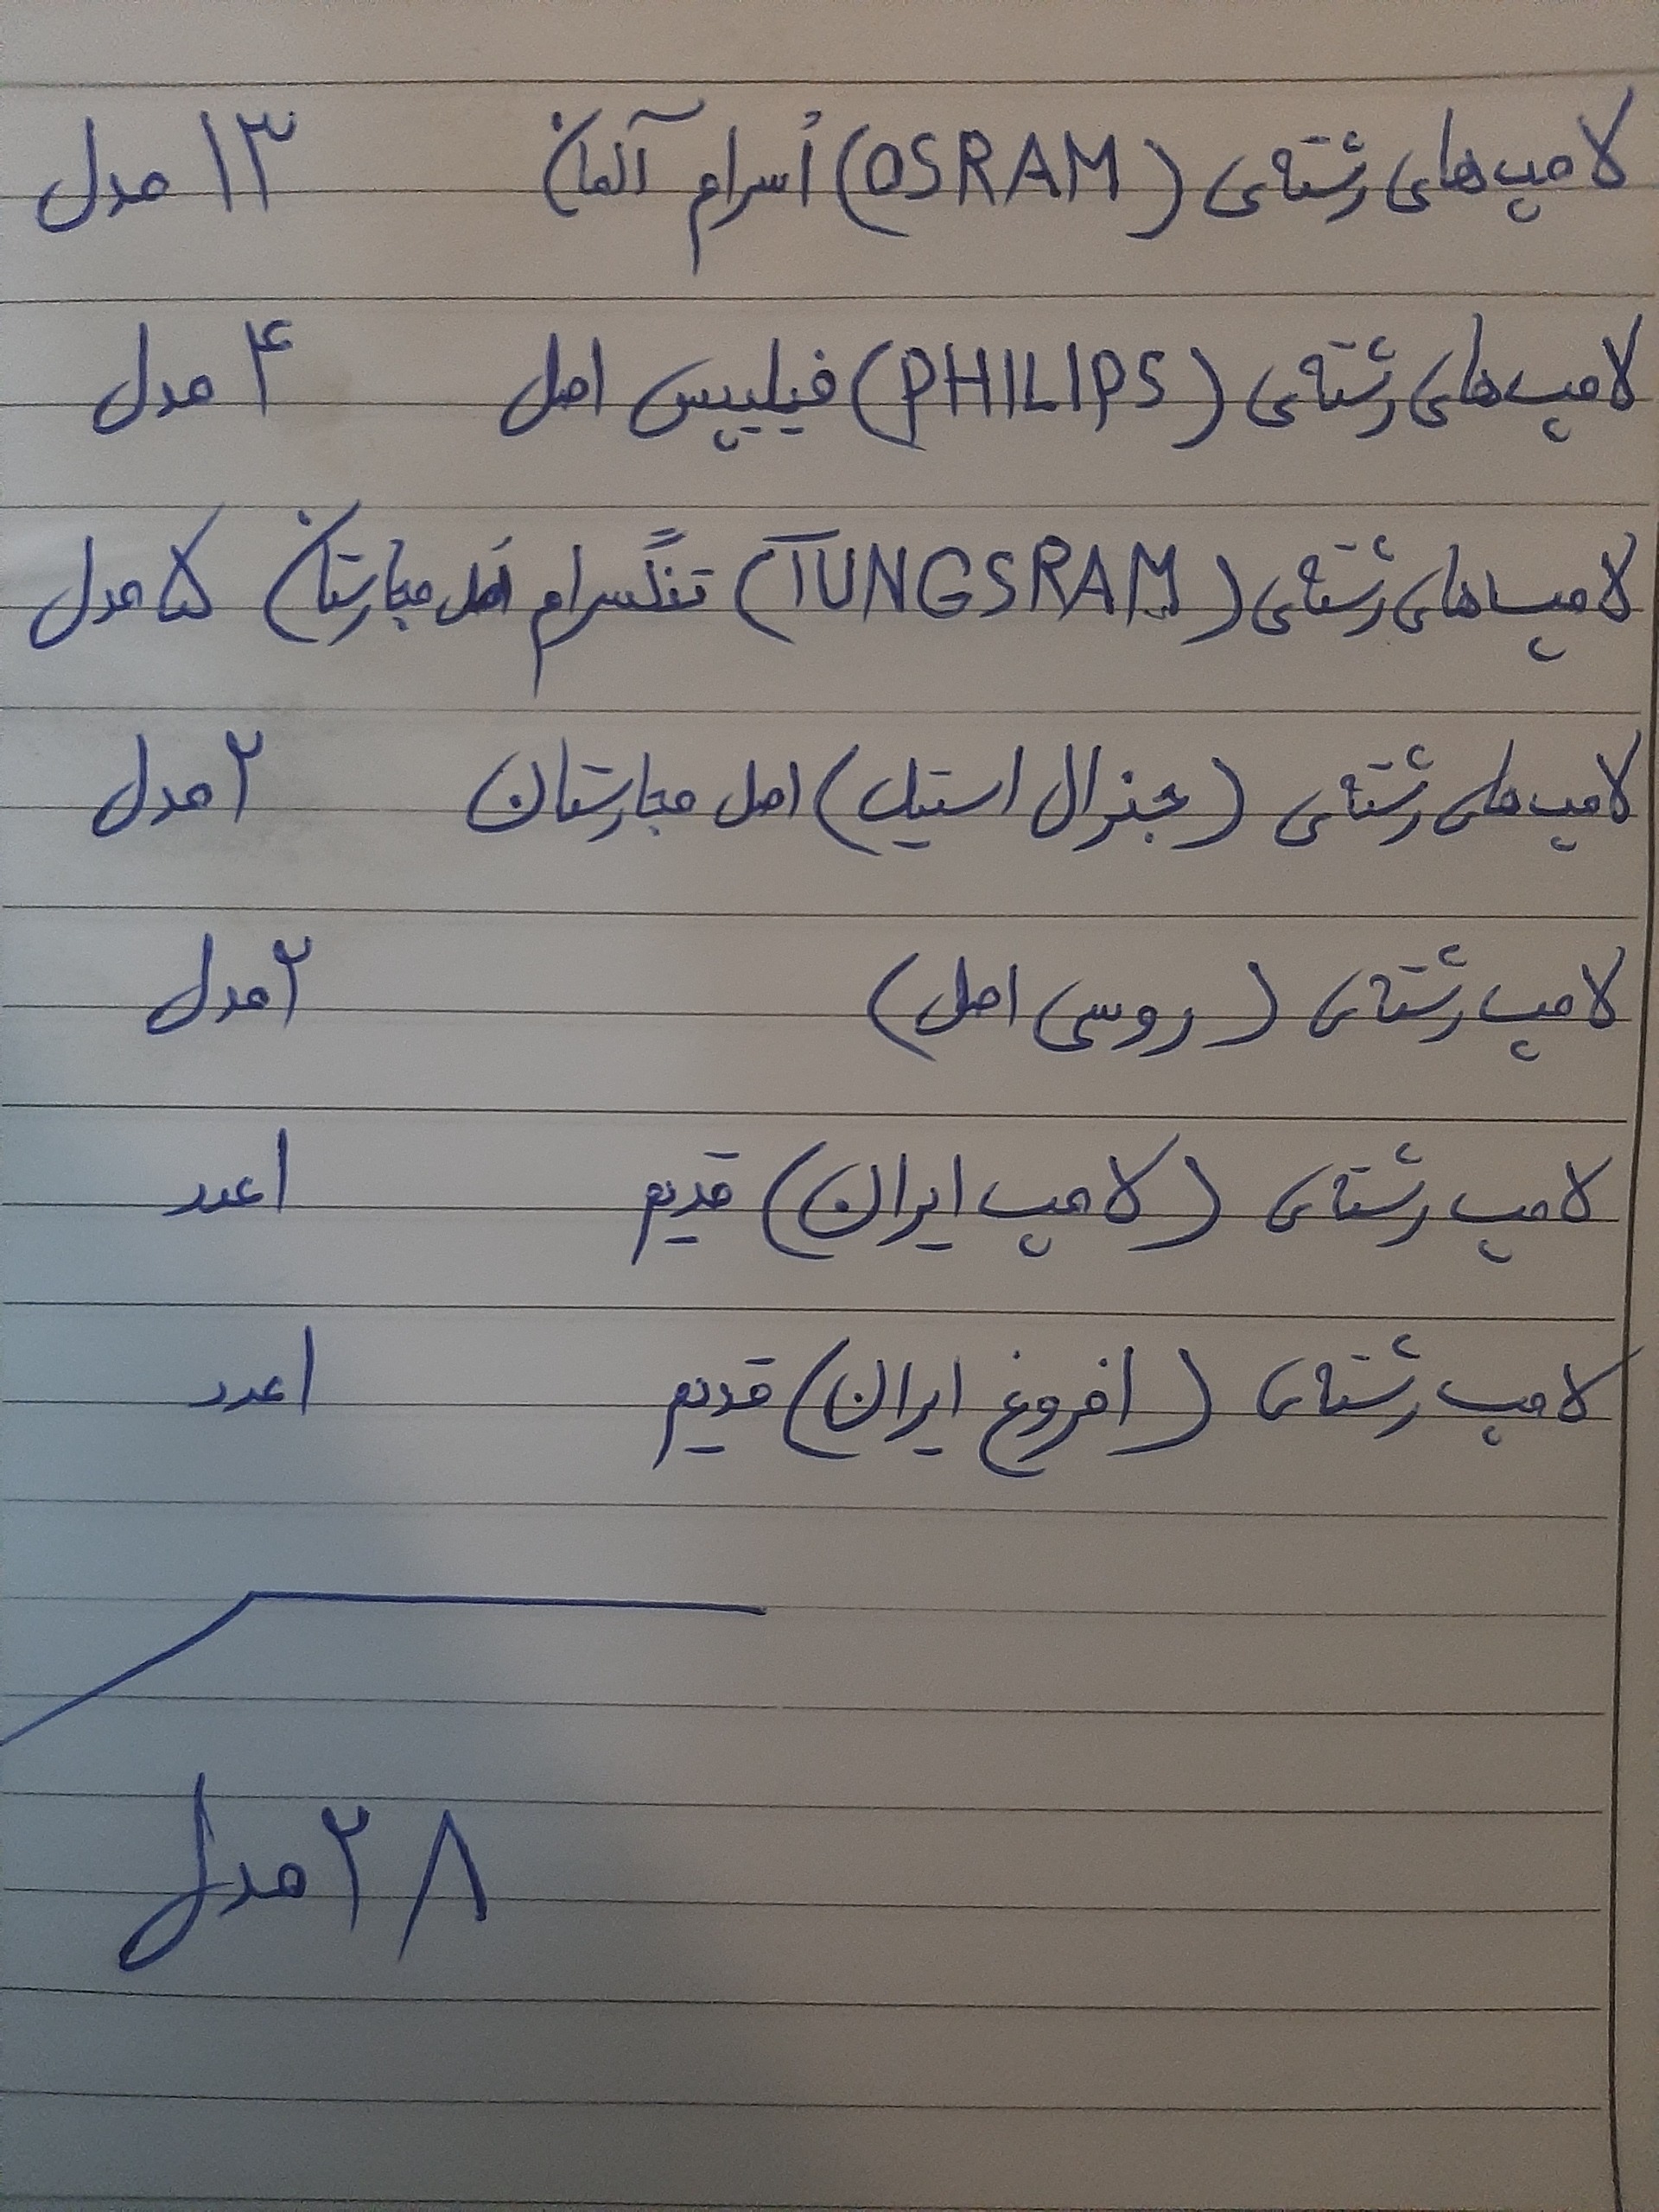 لامپ‌های رشته‌ی (OSRAM) اُسرام آلمان ۱۳ مدل
لامپ‌های رشته‌ی (PHILIPS) فیلیپس اصل ۴ مدل
لامپ‌های رشته‌ی (TUNGSRAM) تنگسرام اصل مجارستان ۵ مدل
لامپ‌های رشته‌ی (جنرال استیل) اصل مجارستان ۲ مدل
لامپ رشته‌ی (روسی اصل) ۲ مدل
لامپ رشته‌ی (لامپ ایران) قدیم ۱ عدد
لامپ رشته‌ی (افروغ ایران) قدیم ۱ عدد
۲۸ مدل